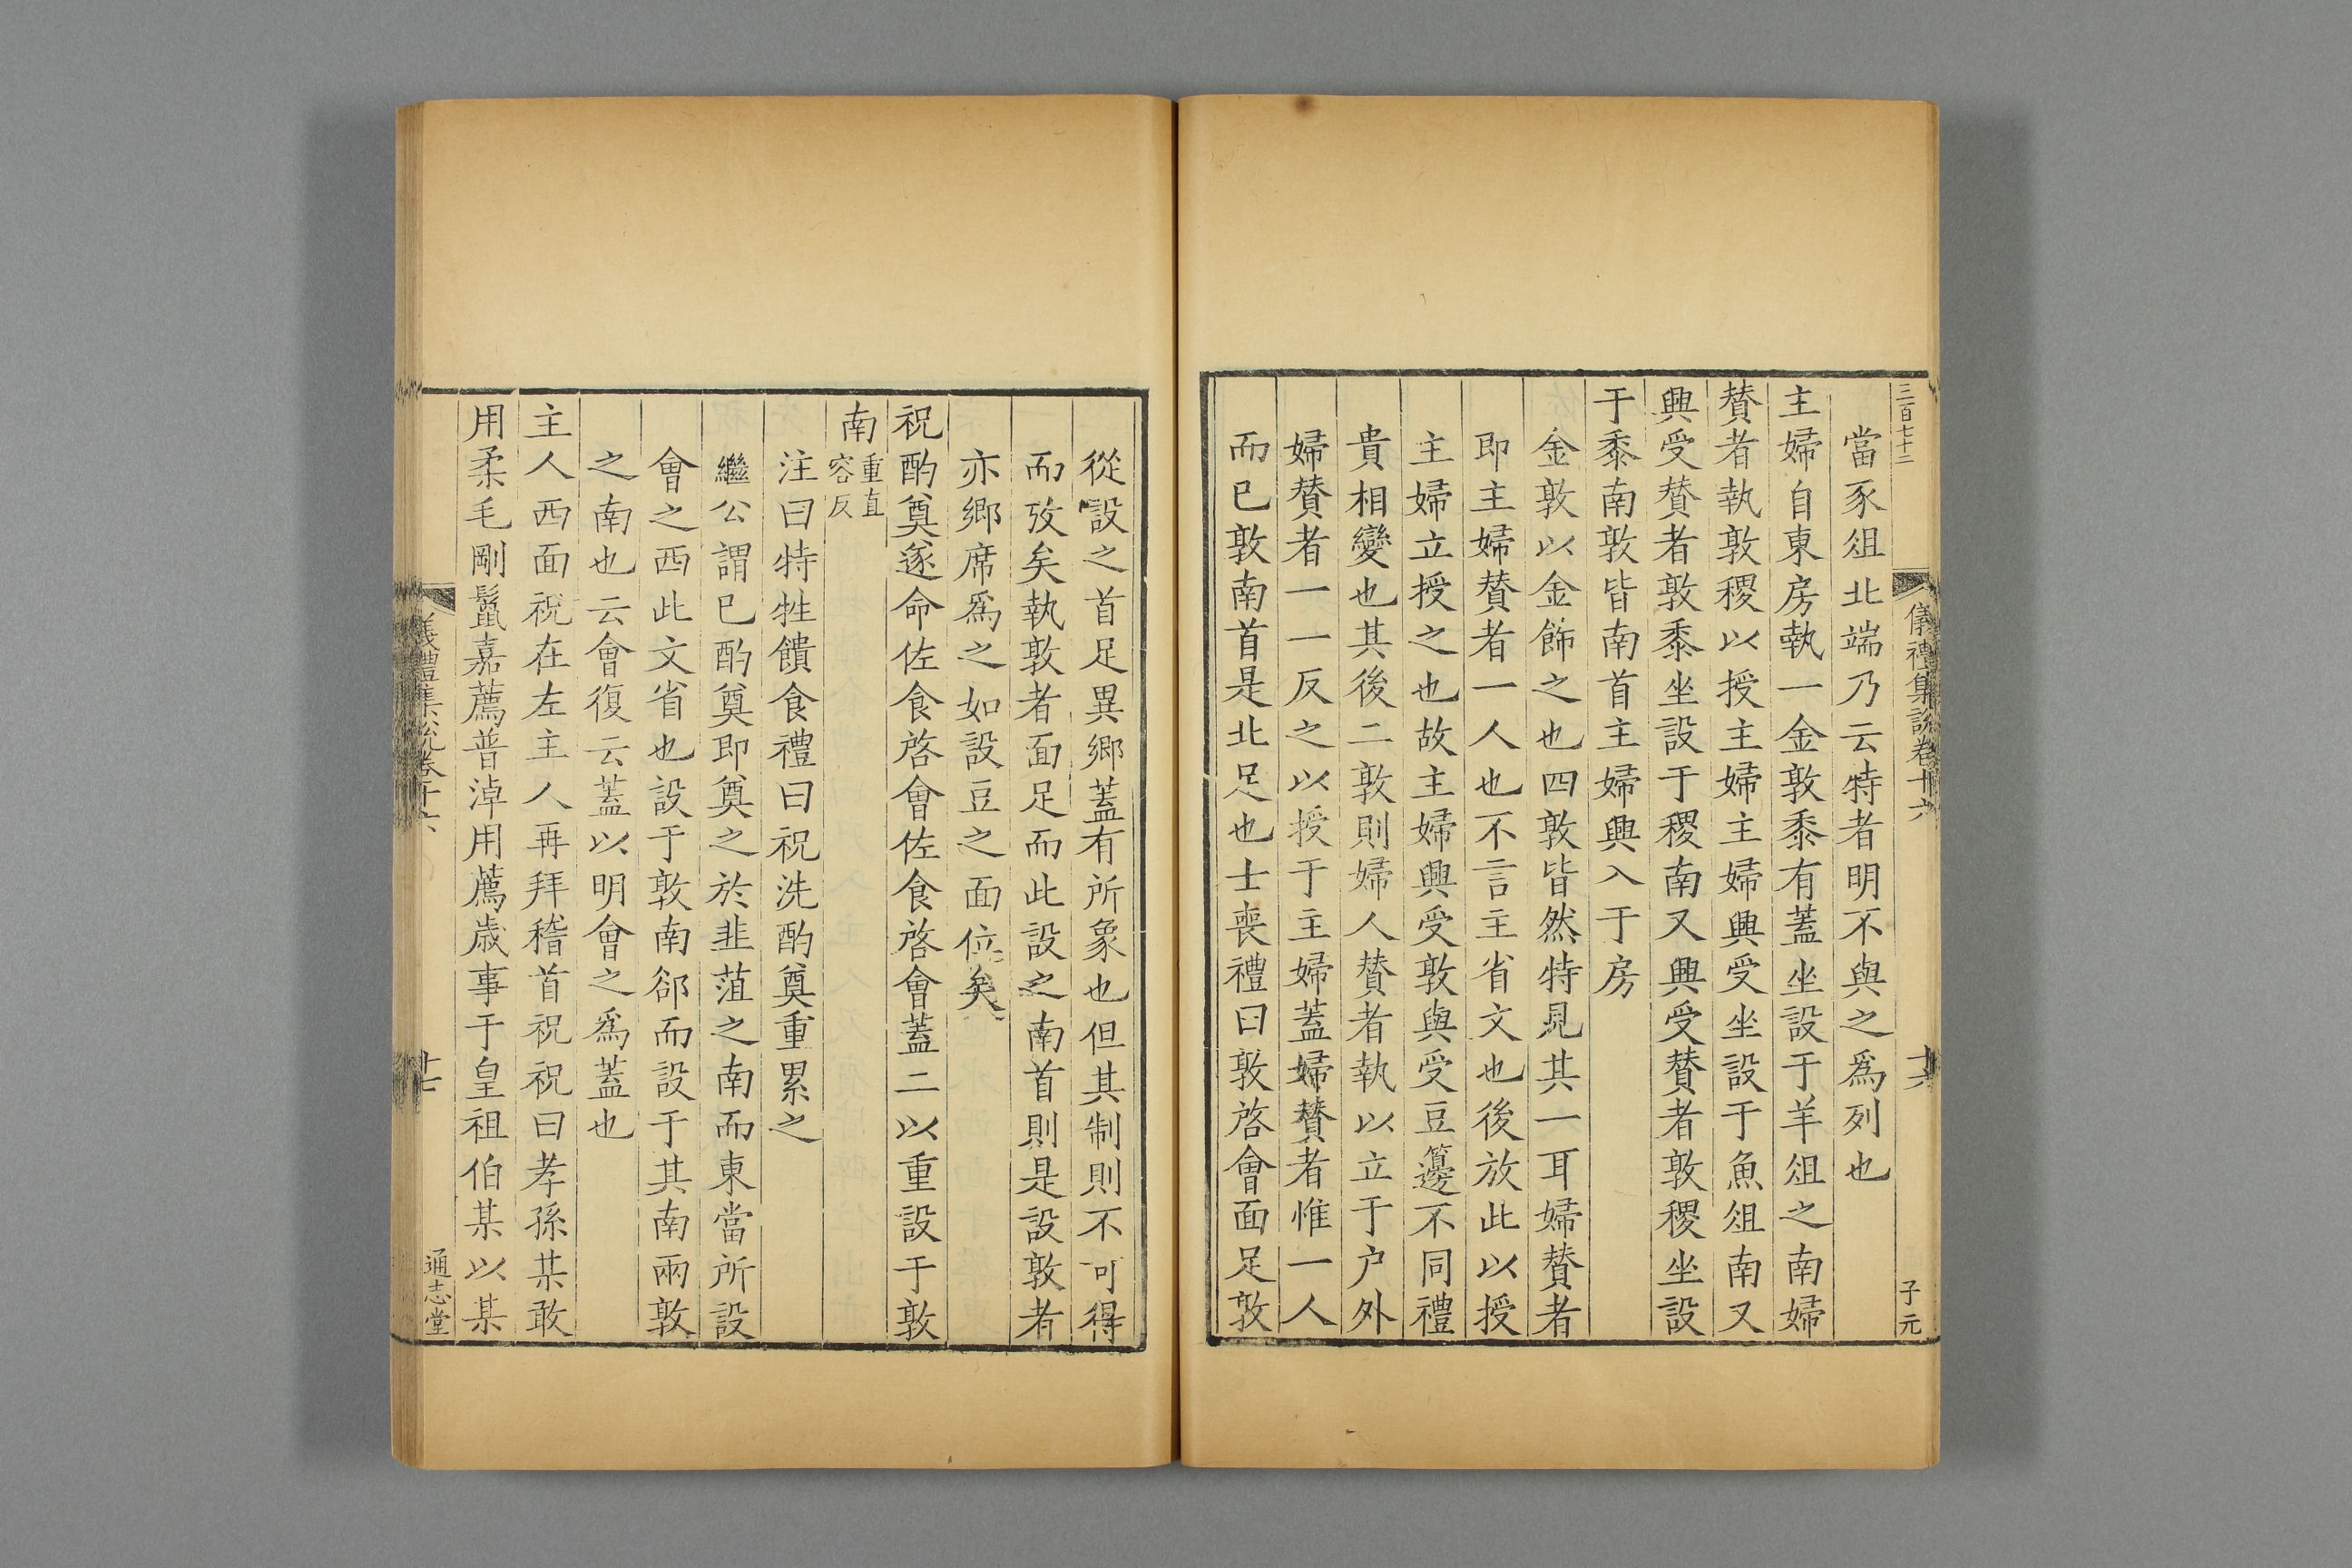 三百七十二
儀禮集說卷十六
十六
子元
當豕俎北端乃云特者明不與之爲列也
主婦自東房執一金敦黍有蓋坐設于羊俎之南婦
贊者執敦稷以授主婦主婦興受坐設于魚俎南又
興受贊者敦黍坐設于稷南又興受贊者敦稷坐設
于黍南敦皆南首主婦興入于房
金敦以金飾之也四敦皆然特見其一耳婦贊者
即主婦贊者一人也不言主省文也後放此以授
主婦立授之也故主婦興受敦與受豆籩不同禮
貴相變也其後二敦則婦人贊者執以立于户外
婦贊者一一反之以授于主婦蓋婦贊者惟一人
而已敦南首是北足也士喪禮曰敦啓會面足敦
從設之首足異鄉蓋有所象也但其制則不可得
而攷矣執敦者面足而此設之南首則是設敦者
亦鄉席爲之如設豆之面位矣
祝酌奠遂命佐食啓會佐食啓會蓋二以重設于敦
南重直容反
注曰特牲饋食禮曰祝洗酌奠重累之
繼公謂已酌奠即奠之於韭菹之南而東當所設
會之西此文省也設于敦南郤而設于其南兩敦
之南也云會復云蓋以明會之爲蓋也
主人西面祝在左主人再拜稽首祝祝曰孝孫某敢
用柔毛剛鬣嘉薦普淖用薦歲事于皇祖伯某以某
儀禮集說卷十六
十七
通志堂